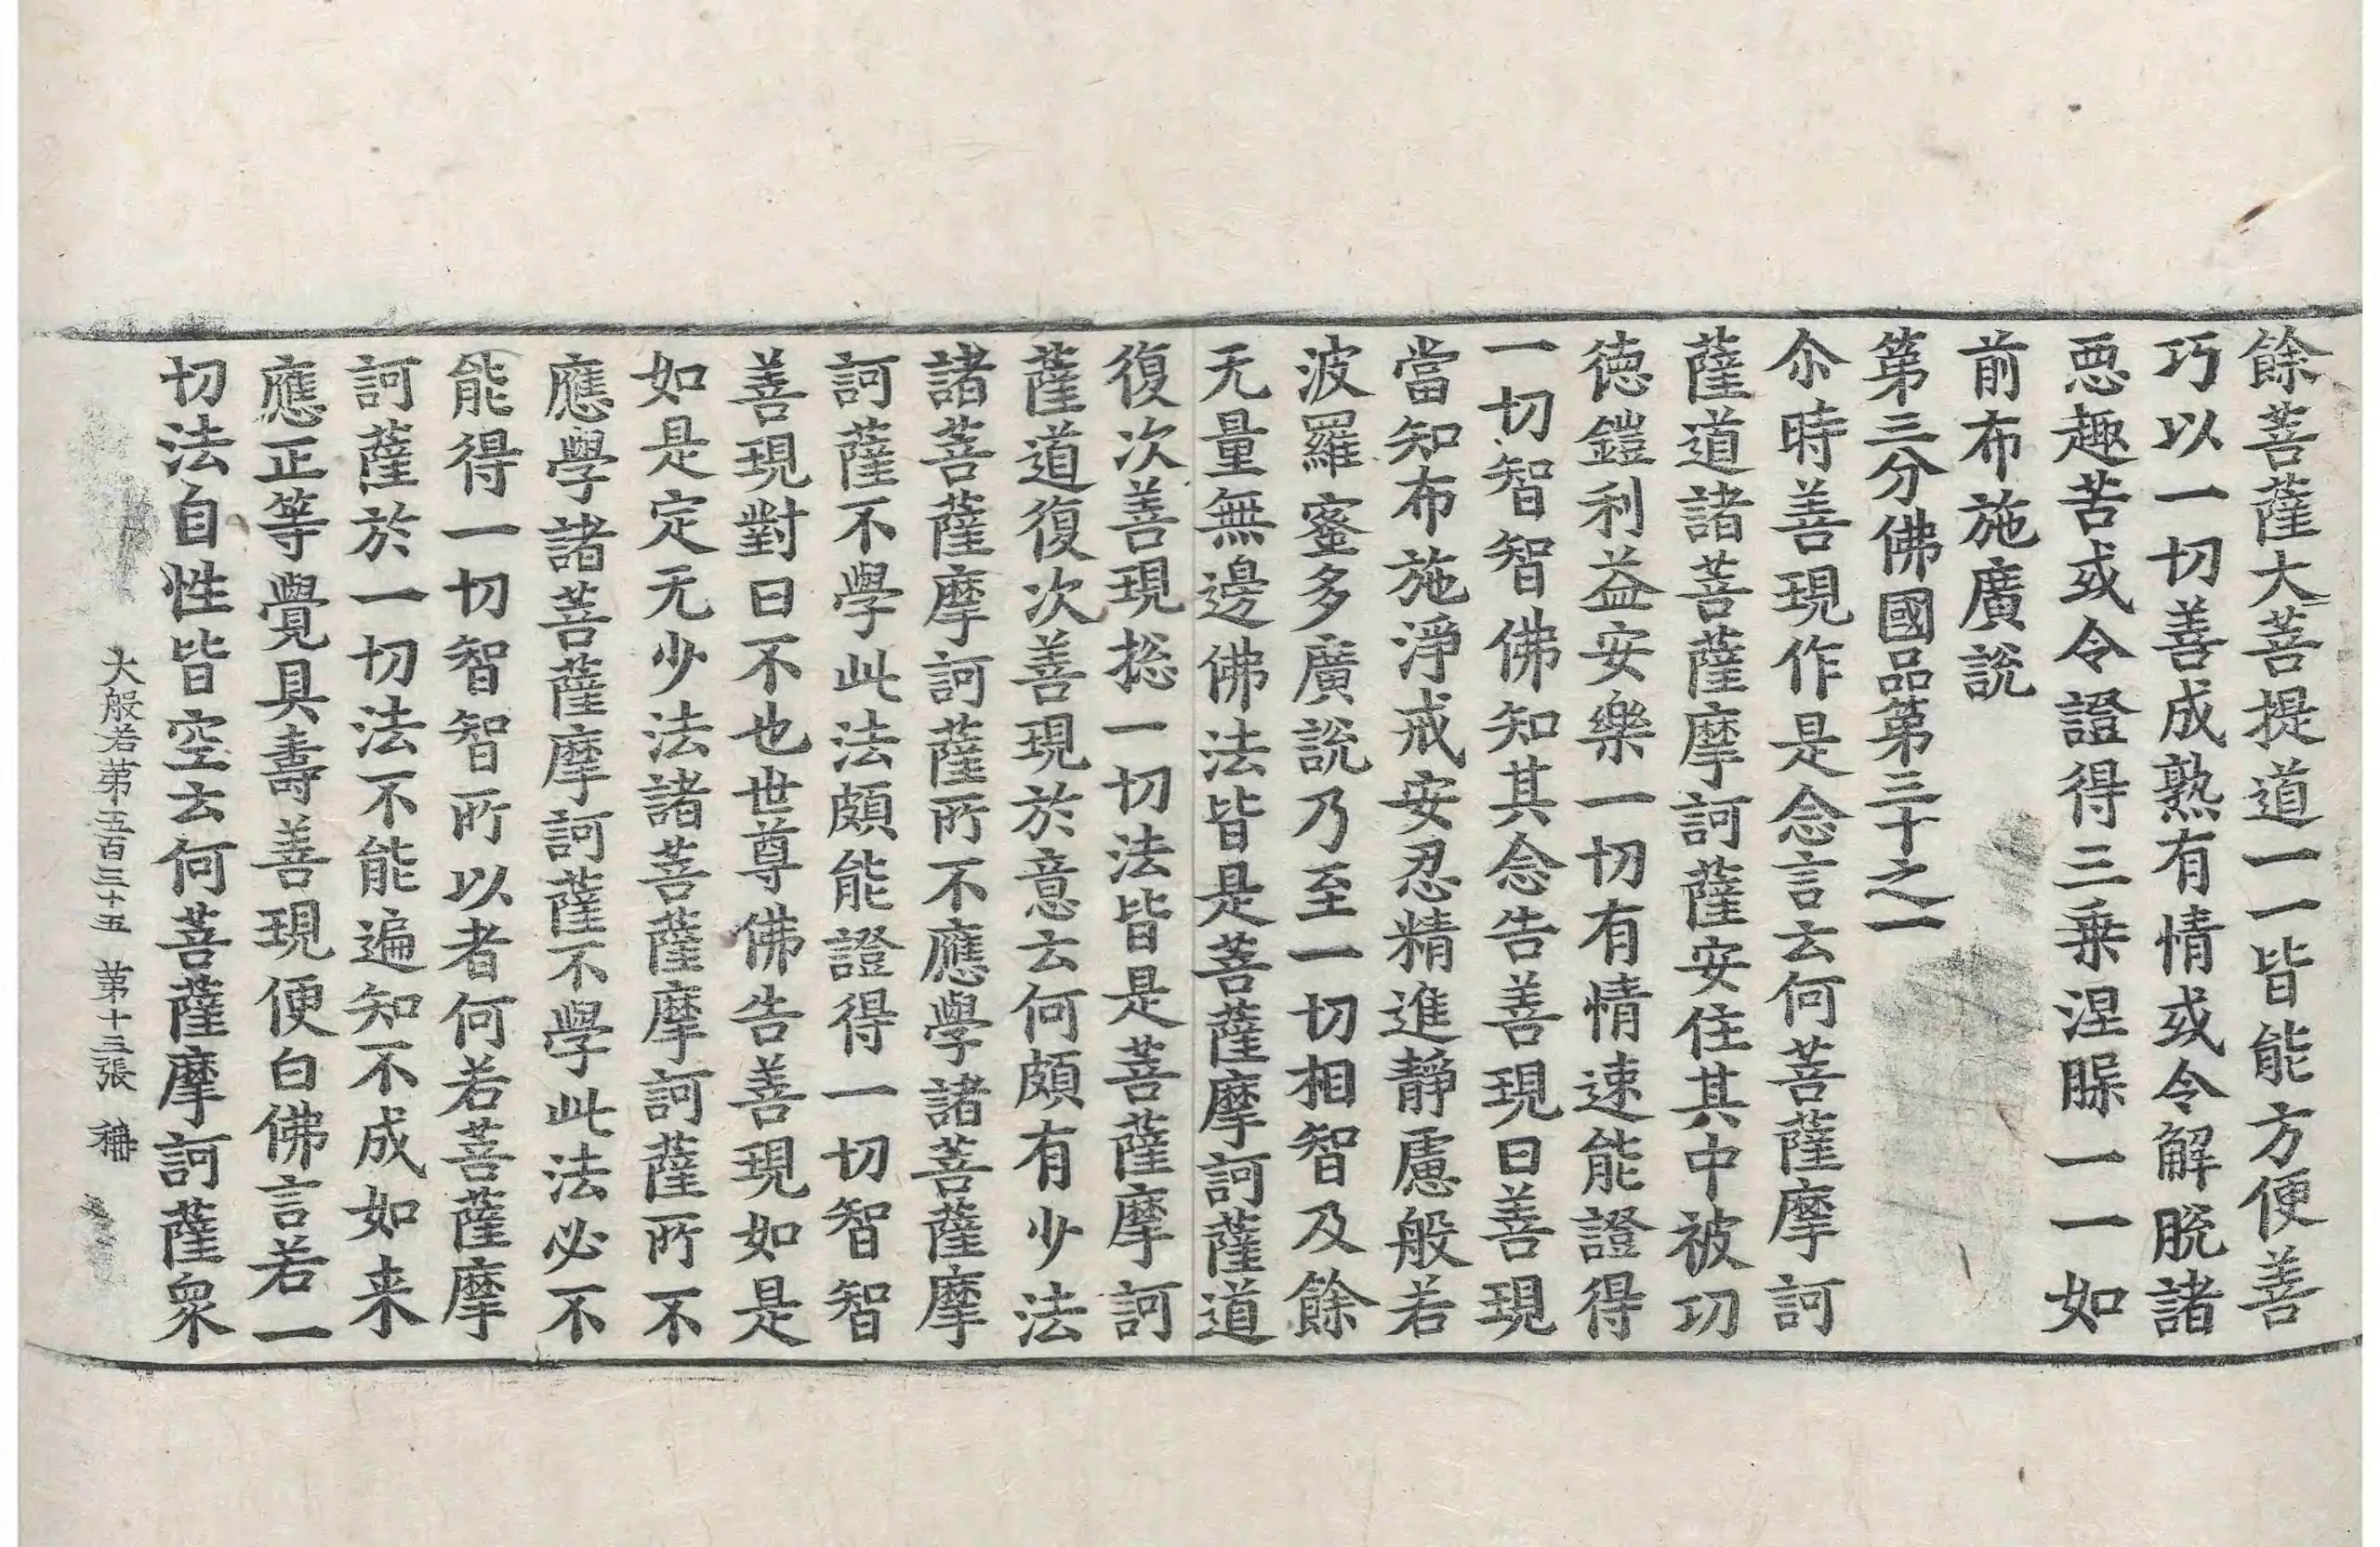 餘菩薩大菩提道一一皆能方便善
巧以一切善成熟有情或令解脫諸
惡趣苦或令證得三乗涅槃一一如
前布施廣說
第三分佛國品第三十之一
尒時善現作是念言云何菩薩摩訶
薩道諸菩薩摩訶薩安住其中被功
徳鎧利益安樂一切有情速能證得
一切智智佛知其念告善現曰善現
當知布施淨戒安忍精進靜慮般若
波羅蜜多廣說乃至一切相智及餘
无量無邊佛法皆是菩薩摩訶薩道
復次善現捴一切法皆是菩薩摩訶
薩道復次善現於意云何頗有少法
諸菩薩摩訶薩所不應學諸菩薩摩
訶薩不學此法頗能證得一切智智
善現對曰不也世尊佛告善現如是
如是定无少法諸菩薩摩訶薩所不
應學諸菩薩摩訶薩不學此法必不
能得一切智智所以者何若菩薩摩
訶薩於一切法不能遍知不成如来
應正等覺具壽善現便白佛言若一
切法自性皆空云何菩薩摩訶薩衆
大般若第五百三十五 第十三張 稱